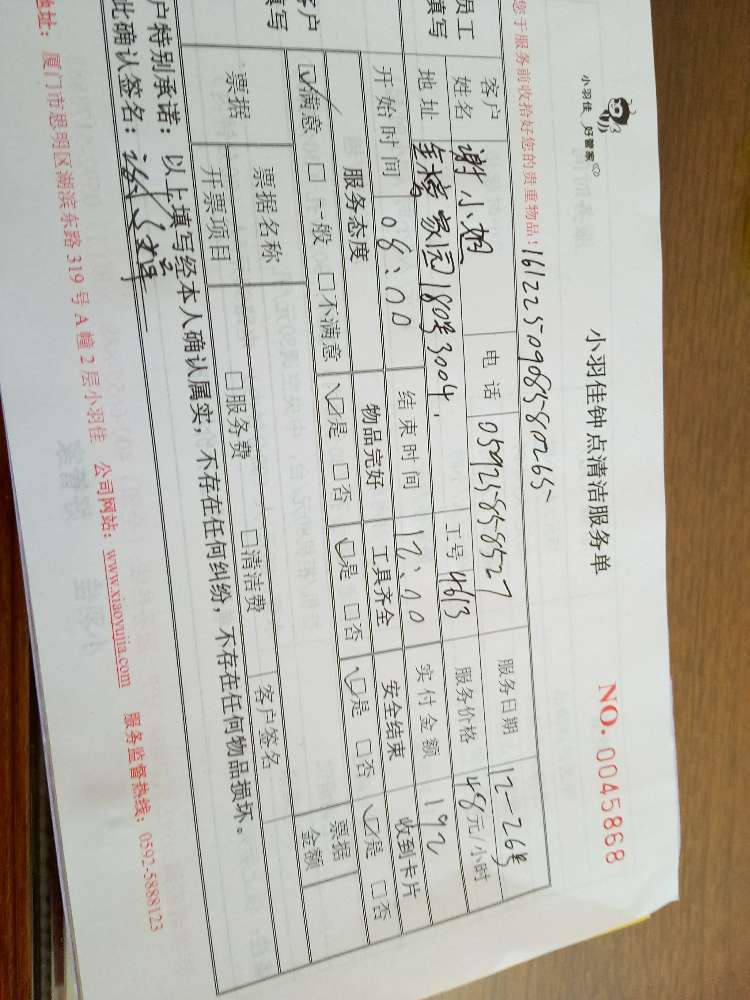 小羽佳 好管家
小羽佳钟点清洁服务单
NO. 0045868
您于服务前收拾好您的贵重物品! 1612250908580265
员工
填写
客户
姓名 谢小姐 电话 05925858527 服务日期 12-26号
地址 金橋家园180号3004. 工号 4613 服务价格 48元/小时
开始时间 08:00 结束时间 12:00 实付金额 192
客户
填写
服务态度 物品完好 工具齐全 安全结束 收到卡片
☑满意 □一般 □不满意 ☑是 □否 ☑是 □否 ☑是 □否 ☑是 □否
票据 票据名称 客户签名 票据金额
开票项目 □服务费 □清洁费
户特别承诺：以上填写经本人确认属实；不存在任何纠纷，不存在任何物品损坏。
此确认签名：
地址：厦门市思明区湖滨东路319号A幢2层小羽佳 公司网站：www.xiaoyujia.com 服务监督热线：0592-5888123